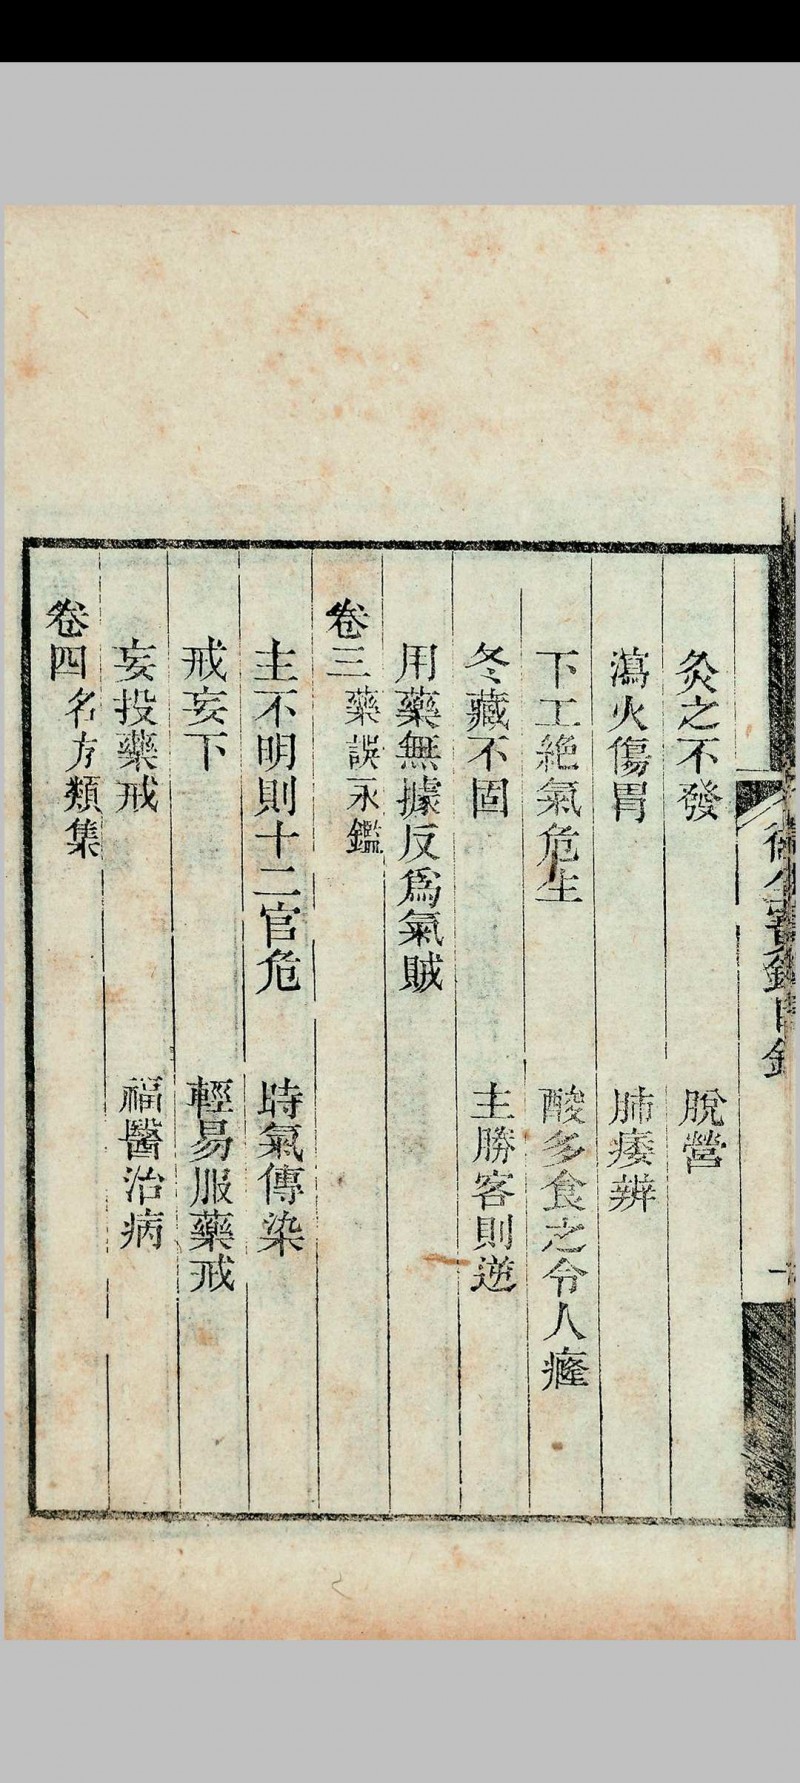 灸之不發　脫營
瀉火傷胃　肺痿辨
下工絕氣危生　酸多食之令人癃
冬藏不固　主勝客則逆
用藥無據反爲氣賊
卷三 藥誤永鑑
主不明則十二官危　時氣傳染
戒妄下　輕易服藥戒
妄投藥戒　福醫治病
卷四 名方類集